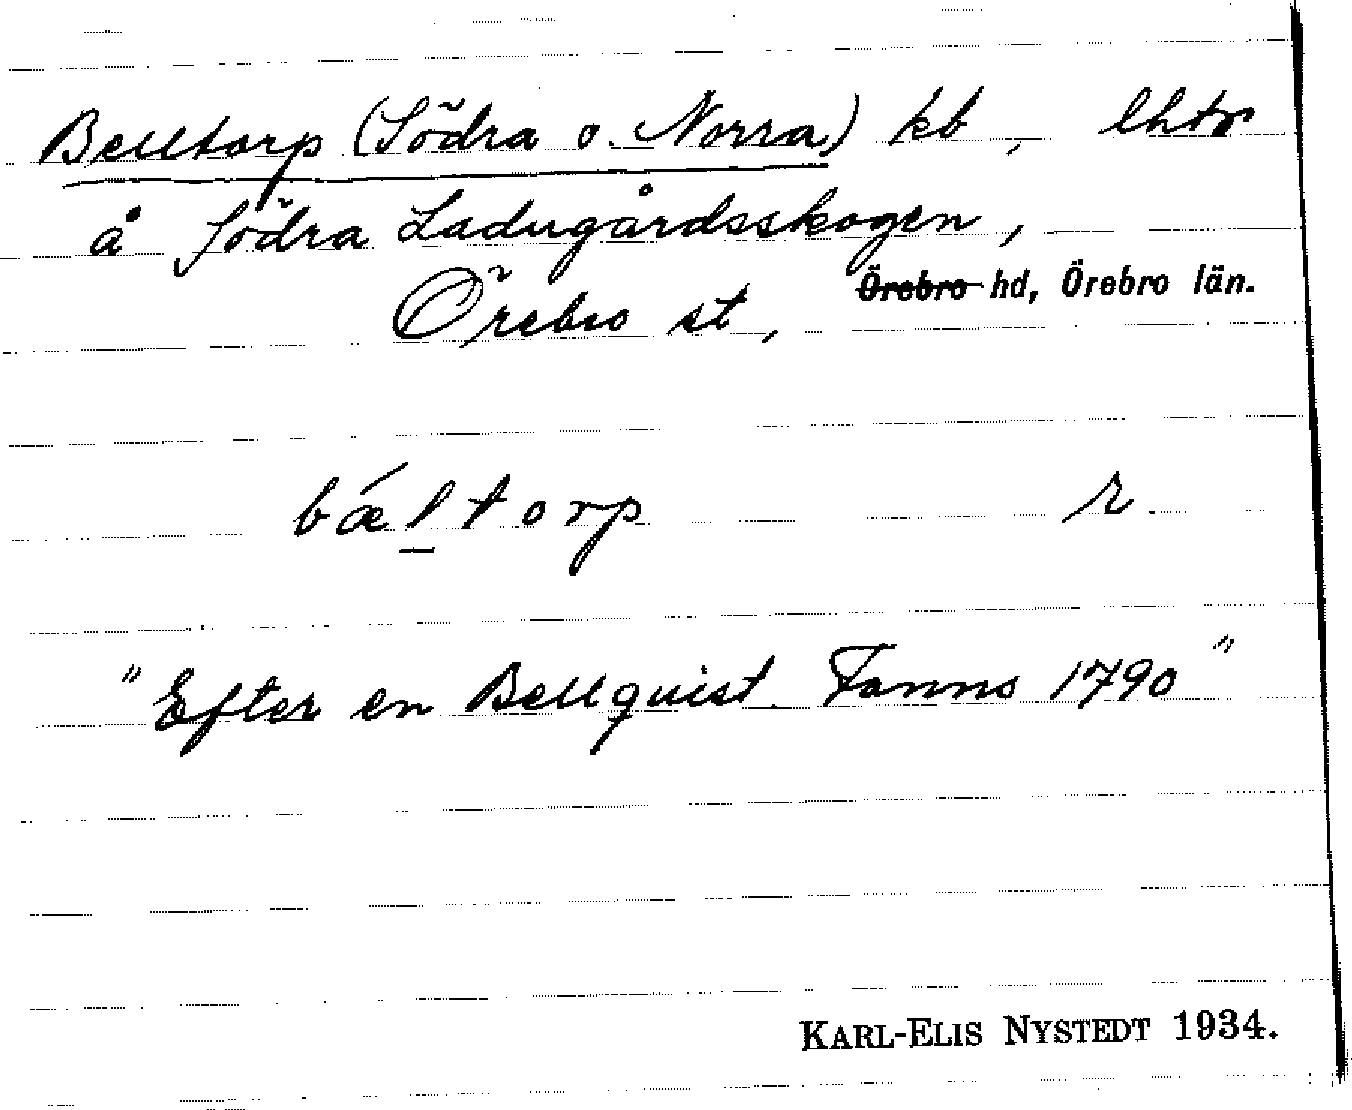 Belltorp (Södra o. Norra) kb, lhtr
å Södra Ladugårdsskogen,
Örebro st, Örebro hd, Örebro län.
bǽltorp r.
"Efter en Bellquist. Fanns 1790"
KARL-ELIS NYSTEDT 1934.